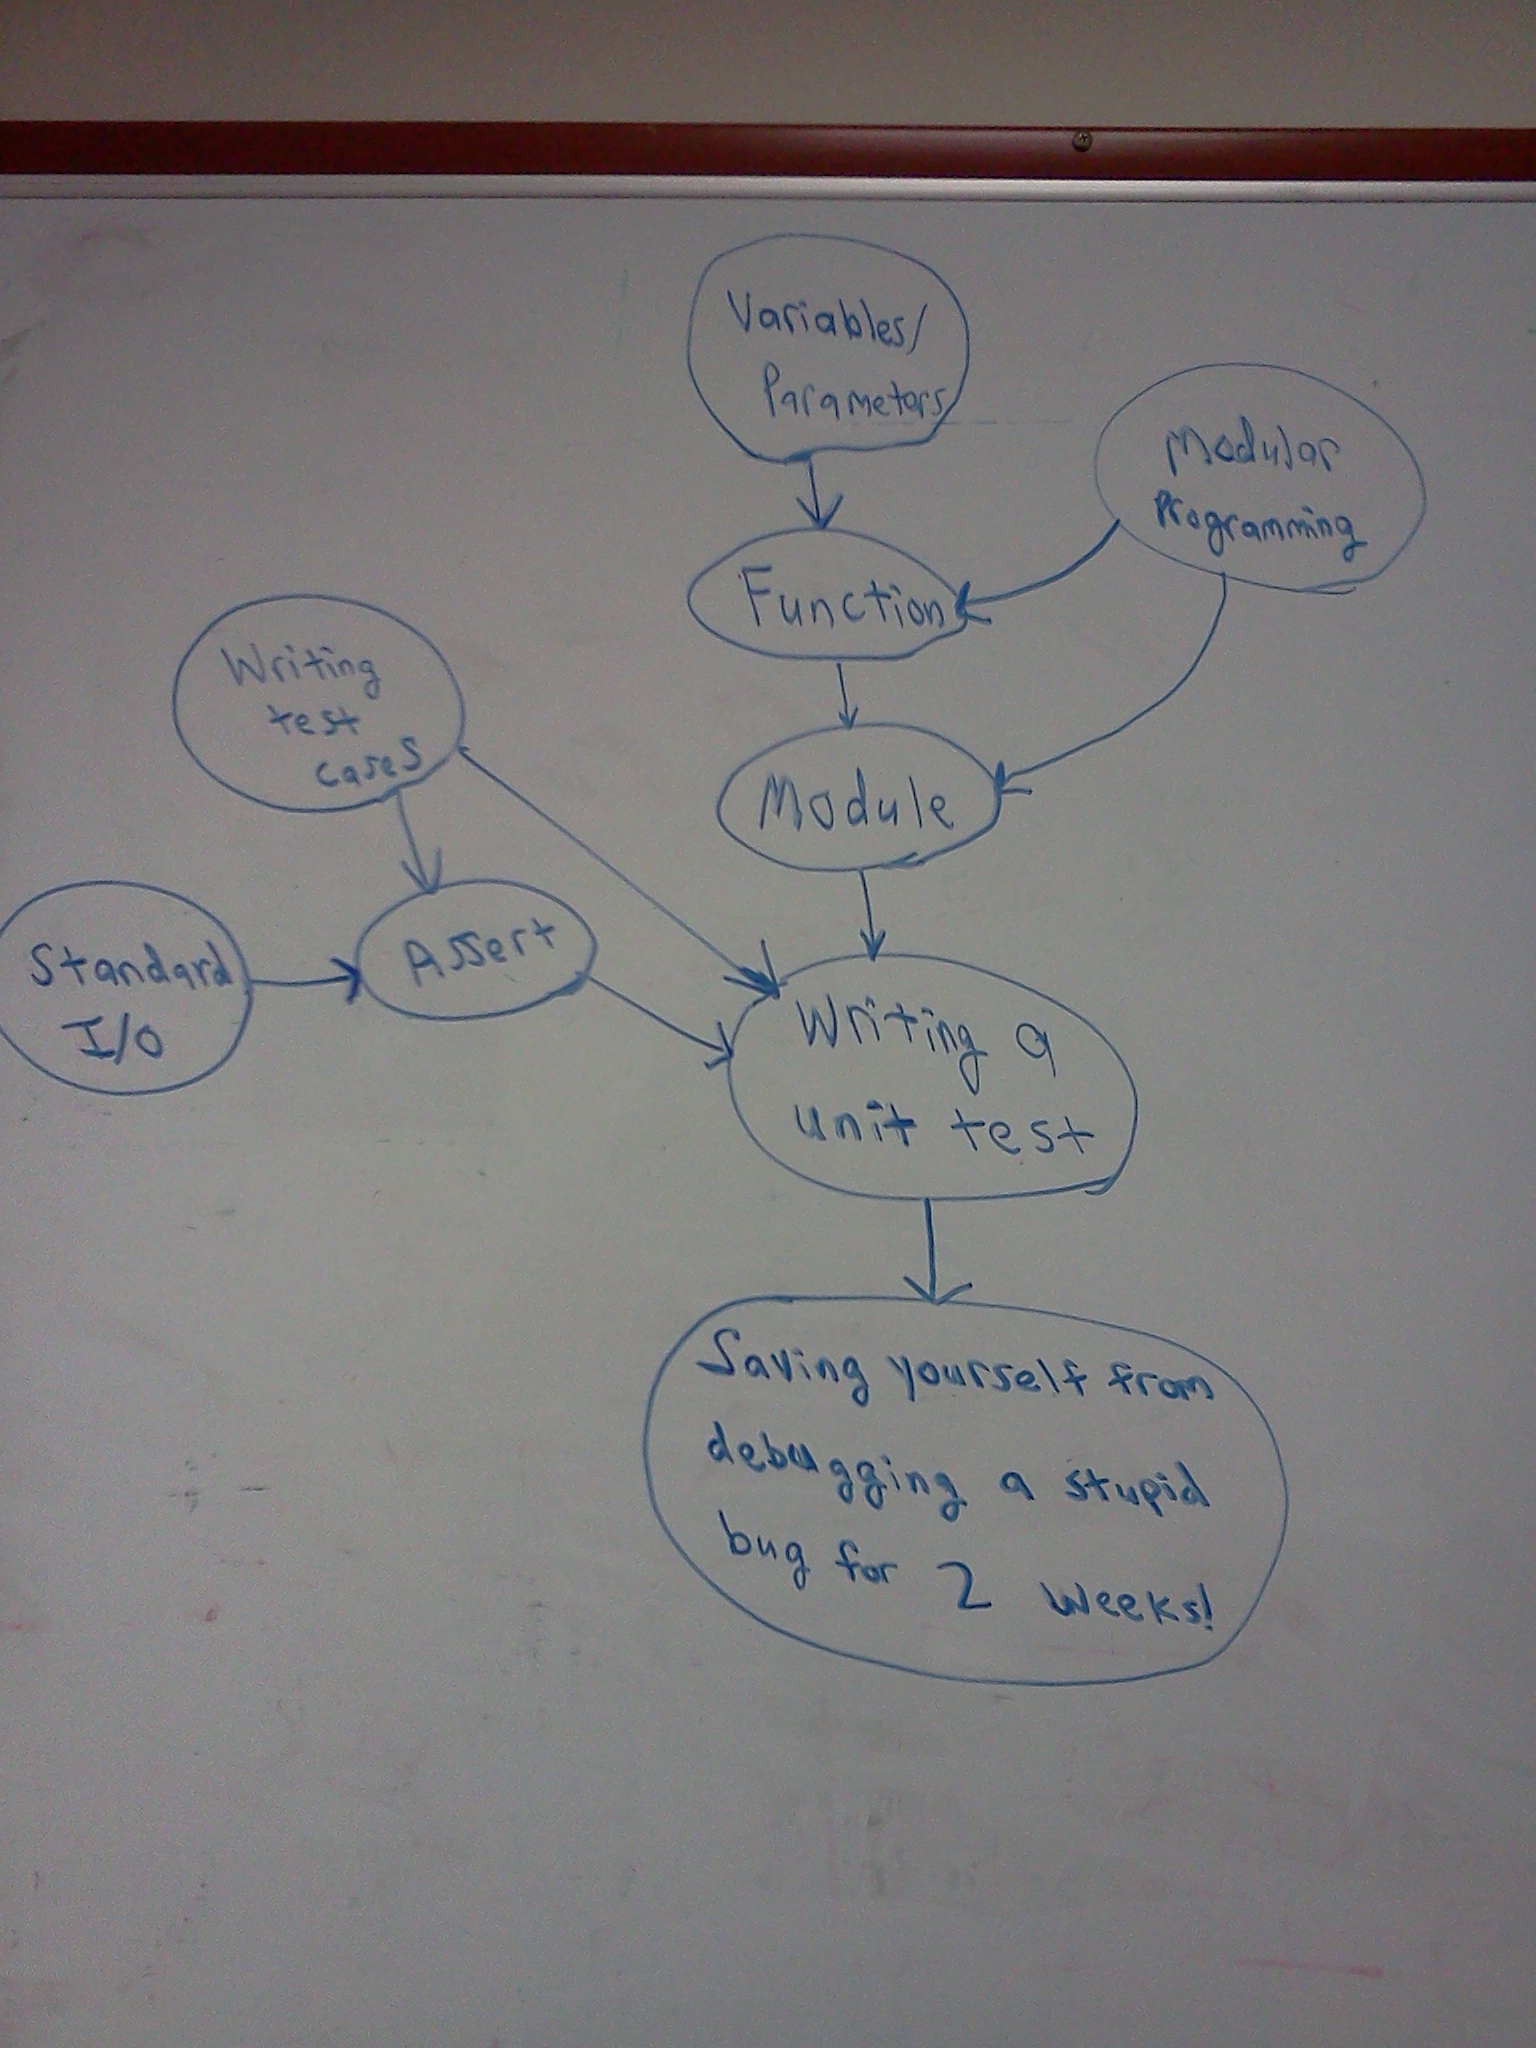 Variables/
Parameters
Modular
Programming
Function
Writing
test
cases
Module
Standard
I/O
Assert
Writing a
unit test
Saving yourself from
debugging a stupid
bug for 2 weeks!